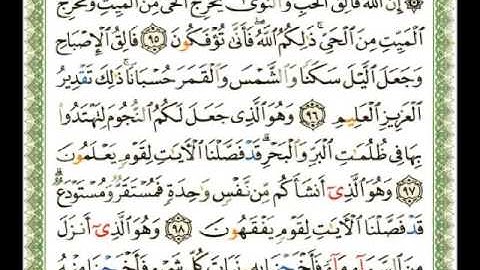 ۞ إِنَّ ٱللَّهَ فَالِقُ ٱلْحَبِّ وَٱلنَّوَىٰ يُخْرِجُ ٱلْحَىَّ مِنَ ٱلْمَيِّتِ وَمُخْرِجُ
ٱلْمَيِّتِ مِنَ ٱلْحَىِّ ذَٰلِكُمُ ٱللَّهُ فَأَنَّىٰ تُؤْفَكُونَ ٩٥ فَالِقُ ٱلْإِصْبَاحِ
وَجَعَلَ ٱلَّيْلَ سَكَنًا وَٱلشَّمْسَ وَٱلْقَمَرَ حُسْبَانًا ذَٰلِكَ تَقْدِيرُ
ٱلْعَزِيزِ ٱلْعَلِيمِ ٩٦ وَهُوَ ٱلَّذِى جَعَلَ لَكُمُ ٱلنُّجُومَ لِتَهْتَدُوا۟
بِهَا فِى ظُلُمَٰتِ ٱلْبَرِّ وَٱلْبَحْرِ قَدْ فَصَّلْنَا ٱلْءَايَٰتِ لِقَوْمٍ يَعْلَمُونَ
٩٧ وَهُوَ ٱلَّذِىٓ أَنشَأَكُم مِّن نَّفْسٍ وَٰحِدَةٍ فَمُسْتَقَرٌّ وَمُسْتَوْدَعٌ
قَدْ فَصَّلْنَا ٱلْءَايَٰتِ لِقَوْمٍ يَفْقَهُونَ ٩٨ وَهُوَ ٱلَّذِىٓ أَنزَلَ
مِنَ ٱلسَّمَآءِ مَآءً فَأَخْرَجْنَا بِهِۦ نَبَاتَ كُلِّ شَىْءٍ فَأَخْرَجْنَا مِنْهُ